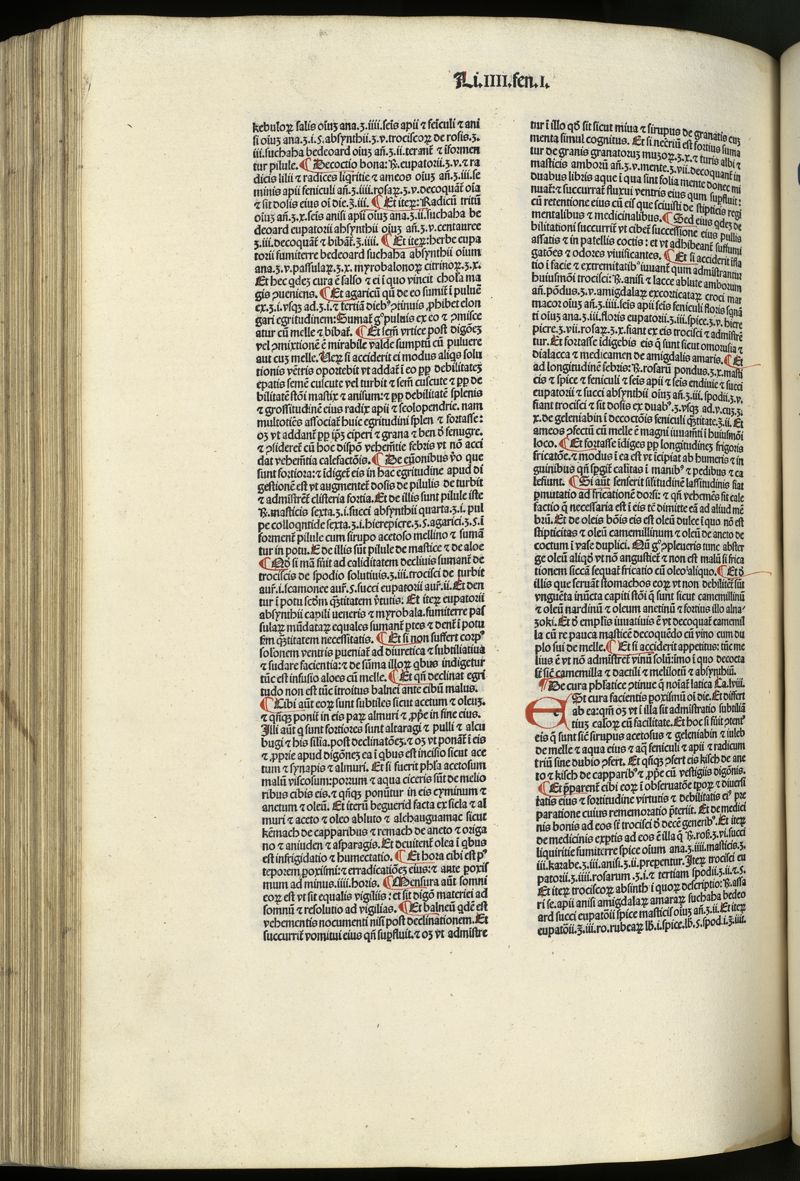 Li.IIII.fen.I.
kebuloꝝ salis oīuȝ ana.ʒ.iiii.seīs apii ⁊ feīculi ⁊ ani
si oīuȝ ana.ʒ.i.5.absynthii.ʒ.v.trociscoꝝ de rosis.ʒ.
iii.suchaha bedeoard oiuȝ añ.ʒ.ii.teranť ⁊ iformen
tur pilule. ¶Decoctio bona: ℞.eupatorii.ʒ.v.⁊ ra
dicis lilii ⁊ radices liqritie ⁊ ameos oiuȝ añ.ʒ.iii.se
minis apii feniculi añ.ʒ.iiii.rosaꝝ.ʒ.v.decoquāť oīa
⁊ sit dosis eius oī die.℥.iii. ¶Et iteꝝ: Radicū tritū
oīuȝ añ.ʒ.x.seīs anisi apii oīuȝ ana.ʒ.ii.suchaha be
deoard eupatorii absynthii oiuȝ añ.ʒ.v.centauree
ʒ.iii.decoquāť ⁊ bibāť.ʒ.iiii. ¶Et iteꝝ: herbe eupa
torii fumiterre bedeoard suchaha absynthii oīum
ana.ʒ.v.passulaꝝ.ʒ.x.myrobalonoꝝ citrinoꝝ.ʒ.x.
Et hec qdeȝ cura ē salso ⁊ ei ī quo vincit cholꝛa ma
gis ꝯueniens. ¶Et agaricū qñ de eo sumiť ī puluē
ex.ʒ.i.vsqȝ ad.ʒ.i.⁊ tertiā diebꝰ ꝯtinuis ꝓhibet elon
gari egritudinem: Sumať gͦ puluis ex eo ⁊ ꝯmisce
atur cū melle ⁊ bibať. ¶Et sem̄ vrtice post digōeȝ
vel ꝯmixtionē ē mirabile valde sumptū cū puluere
aut cuȝ melle. Ueꝝ si acciderit ei modus aliqs solu
tionis vētris oportebit vt addať ī eo ꝓp debilitateȝ
epatis semē cuscute vel turbit ⁊ sem̄ cuscute ⁊ ꝓp de
bilitatē stōi mastix ⁊ anisum: ⁊ ꝓp debilitatē splenis
⁊ grossitudinē eius radix apii ⁊ scolopendrie. nam
multotiēs associať huic egritudini splen ⁊ fortasse:
oȝ vt addanť ꝓp ip̄ȝ ciperi ⁊ grana ⁊ ben ⁊ senugre.
⁊ ꝯsidereť cū hoc dispō vehemētie febris vt nō acci
dat vehemētia calefactōis. ¶De eūonibus ꝟo que
sunt fortiora: ⁊ īdiget eis in hac egritudine apud di
gestionē est vt augmenteť dosis de pilulis de turbit
⁊ admistreť clisteria fortia. Et de illis sunt pilule iste
℞.masticis sexta.ʒ.i.succi absynthii quarta.ʒ.i.pul
pe colloqntide sexta.ʒ.i.hierepicre.ʒ.5.agarici.ʒ.5.ī
formenť pilule cum sirupo acetoso mellino ⁊ sumā
tur in potu. Et de illis sūt pilule de mastice ⁊ de aloe
¶Nō si mā fuit ad caliditatem decliuis sumanť de
trociscis de spodio solutiuis.ʒ.iii.trocisci de turbit
aur̄.i.scamonee aur̄.5.succi eupatorii aur̄.ii. Et den
tur ī potu scd̄m qȝtitatem ꝟtutis. Et iteꝝ eupatorii
absynthii capilli veneris ⁊ myrobala. fumiterre pas
sulaꝝ mūdataꝝ equales sumanť ꝑtes ⁊ denť ī potu
sem̄ qȝtitatem necessitatis. ¶Et si non suffert corpꝰ
solonem ventris ꝑueniať ad diuretica ⁊ subtiliatiua
⁊ sudare facientia: ⁊ de sūma illoꝝ qbus indigetur
tūc est infusio aloes cū melle. ¶Et qñ declinat egri
tudo non est tūc itroitus balnei ante cibū malus.
¶Cibi aūt eoꝝ sunt subtiles sicut acetum ⁊ oleuȝ.
⁊ qñqȝ ponīť in eis paꝝ almuri ⁊ ꝓpe in fine eius.
Illi aūt q sunt fortiores sunt altaragi ⁊ pulli ⁊ alcu
bugi ⁊ his silia. post declinatōeȝ. ⁊ oȝ vt ponāť ī eis
⁊ ꝓprie apud digōneȝ ea ī qbus est incisio sicut ace
tum ⁊ synapis ⁊ almuri. Et si fuerit phl̄a acetosum
malū viscosum: porrum ⁊ aqua ciceris sūt de melio
ribus cibis eis. ⁊ qñqȝ ponūtur in eis cyminum ⁊
anetum ⁊ oleū. Et iterū beguerid facta ex sicla ⁊ al
muri ⁊ aceto ⁊ oleo abluto ⁊ alchauguamae sicut
kēmach de capparibus ⁊ remach de aneto ⁊ origa
no ⁊ aniuden ⁊ asparagis. Et deuitenť olea ī qbus
est infrigidatio ⁊ humectatio. ¶Et hora cibi est pꝰ
teporem ꝓximi: ⁊ erradicatiōeȝ eius: ⁊ ante ꝓxis
mum ad minus.iiii.horis. ¶Mensura aūt somni
eoꝝ est vt sit equalis vigiliis: et sit digō materiei ad
somnū ⁊ resolutio ad vigilias. ¶Et balneū qdē est
vehementis nocumenti nisi post declinationem. Et
succurrať vomitui eius qñ suꝑfluit. ⁊ oȝ vt admistre
tur ī illo qd̄ sit sicut miua ⁊ sirupus de granatis cuȝ
menta simul cognitus. Et si necriū est fortius suma
tur de granis granatoruȝ muȝoꝝ.ʒ.x.⁊ turis albi ⁊
masticis amborū añ.ʒ.v.mente.ʒ.vii.decoquanť in
duabus libris aque ī qua sunt folia mente donec mi
nuať: ⁊ succurrať fluxui ventris eius qum suꝑfluit:
cū retentione eius cū eis que sciuisti de stipticis regi
mentalibus ⁊ medicinalibus. ¶Sed eius qdeȝ de
bilitationi succurriť vt cibeť successione eius pullis
assatis ⁊ in patellis coctis: et vt adhibeanť suffumi
gatōes ⁊ odores viuificantes. ¶Et si acciderit īfla
tio ī facie ⁊ extremitatibꝰ iuuanť qum admistranťur
huiusmōi trocisci: ℞.anisi ⁊ lacce ablute amborum
añ.pōdus.ʒ.v.amigdalaꝝ excorticataꝝ croci mar
macoꝛ oīuȝ añ.ʒ.iiii.seis apii seis feniculi floris sqnā
ti oīuȝ ana.ʒ.iii.floris eupatorii.ʒ.iii.spice.ʒ.v.hiere
picre.ʒ.vii.rosaꝝ.ʒ.x.fiant ex eis trocisci ⁊ admistrē
tur. Et fortasse īdigebis eis q̄ sunt sicut omorusia ⁊
dialacca ⁊ medicamen de amigdalis amaris. ¶Et
ad longitudinē febris: ℞.rosarū pondus.ʒ.x.masti
cis ⁊ spice ⁊ feniculi ⁊ seis apii ⁊ seis endiuie ⁊ succi
eupatorii ⁊ succi absynthii oiuȝ añ.ʒ.iii.spodii.ʒ.v.
fiant trocisci ⁊ sit dosis ex duabꝰ.ʒ.vsqȝ ad.v.cuȝ.ʒ.
x.de geleniabin ī decoctōis feniculi qȝtitate.ʒ.ii. Et
ameos ꝯfectū cū melle ē magni iuuam̄ti ī huiusmōi
loco. ¶Et fortasse īdiges ꝓp longitudineȝ frigoris
fricatōe. ⁊ modus ī ea est vt īcipiat ab humeris ⁊ in
guinibus qñ sꝑgiť calitas ī manibꝰ ⁊ pedibus ⁊ ca
lefiunt. ¶Si aūt senserit silitudinē lassitudinis fiat
ꝑmutatio ad fricationē dorsi: ⁊ qñ vehemēs sit cale
factio q̄ necessaria est ī eis tē dimitte eā ad aliud mē
brū. Et de oleis bōis eis est oleū dulce ī quo nō est
stipticitas ⁊ oleū camemillinum ⁊ oleū de aneto de
coctum ī vase duplici. Nū gͦ ꝯpleueris tunc abster
ge oleū aliqd̄ vt nō angustieť ⁊ non est malū si frica
tionem siccā sequať fricatio cū oleo aliquo. ¶Et ō
illis que seruāt stomachos eoꝝ vt non debiliteť sūt
vnguēta inūcta capiti stōi q̄ sunt sicut camemillinū
⁊ oleū nardinū ⁊ oleum anetinū ⁊ fortius illo alna-
ȝoki. Et ō emplis iuuatiuis ē vt decoquať camemil
la cū re pauca masticē decoquēdo cū vino cum du
plo sui de melle. ¶Et si acciderit appetitus: tūc me
lius ē vt nō admistreť vinū solū: imo ī quo decocta
sť sic camemilla ⁊ dactili ⁊ melilotū ⁊ absynthiū.
¶De cura phl̄atice ꝯtinue q̄ noiať latica Ca.lviii.
Est cura facientis poximū oī die. Et differt
ab ea: qm̄ oȝ vt ī illa sit admistratio subtiliā
tiuȝ caloꝝ cū facilitate. Et hoc si fūit ptenť
eis q̄ sunt sic sirupus acetosus ⁊ geleniabin ⁊ iuleb
de melle ⁊ aqua eius ⁊ aq̄ feniculi ⁊ apii ⁊ radicum
triū sine dubio ꝯfert. Et qñqȝ ꝯfert eis kisch de ane
to ⁊ kisch de capparibꝰ ⁊ ꝓpe cū vestigiis digōnis.
¶Et p̄parenť cibi eoꝝ ī obseruatōe tꝑoꝝ ⁊ diuersi
tatis eius ⁊ fortitudine virtutis ⁊ debilitatis eiꝰ pre
paratione cuius rememoratio p̄teriit. Et de medici
nis bonis ad eos sť trocisci ō decē generibꝰ. Et iteꝝ
de medicinis exptis ad eos ē illa q̄ ℞.rosꝝ.ʒ.vi.succi
liquiritie fumiterre spice oiuȝ ana.ʒ.iiii.masticis.ʒ.
iii.karabe.ʒ.iii.anisi.ʒ.ii.prepentur. Iteꝝ trocisci eu
patorii.ʒ.iiii.rosarum.ʒ.i.⁊ tertiam spodii.ʒ.ii.⁊.5.
Et iteꝝ trociscoꝝ absinth ī quoꝝ descriptio: ℞.assa
ri se.apii anisi amigdalaꝝ amaraꝝ suchaha bedeo
ard succi eupatōii spice masticis oiuȝ añ.ʒ.ii. Et iteꝝ
eupatōii.ʒ.iii.ro.rubeaꝝ lb.i.spice.lb.5.spod.i.ʒ.iiii.